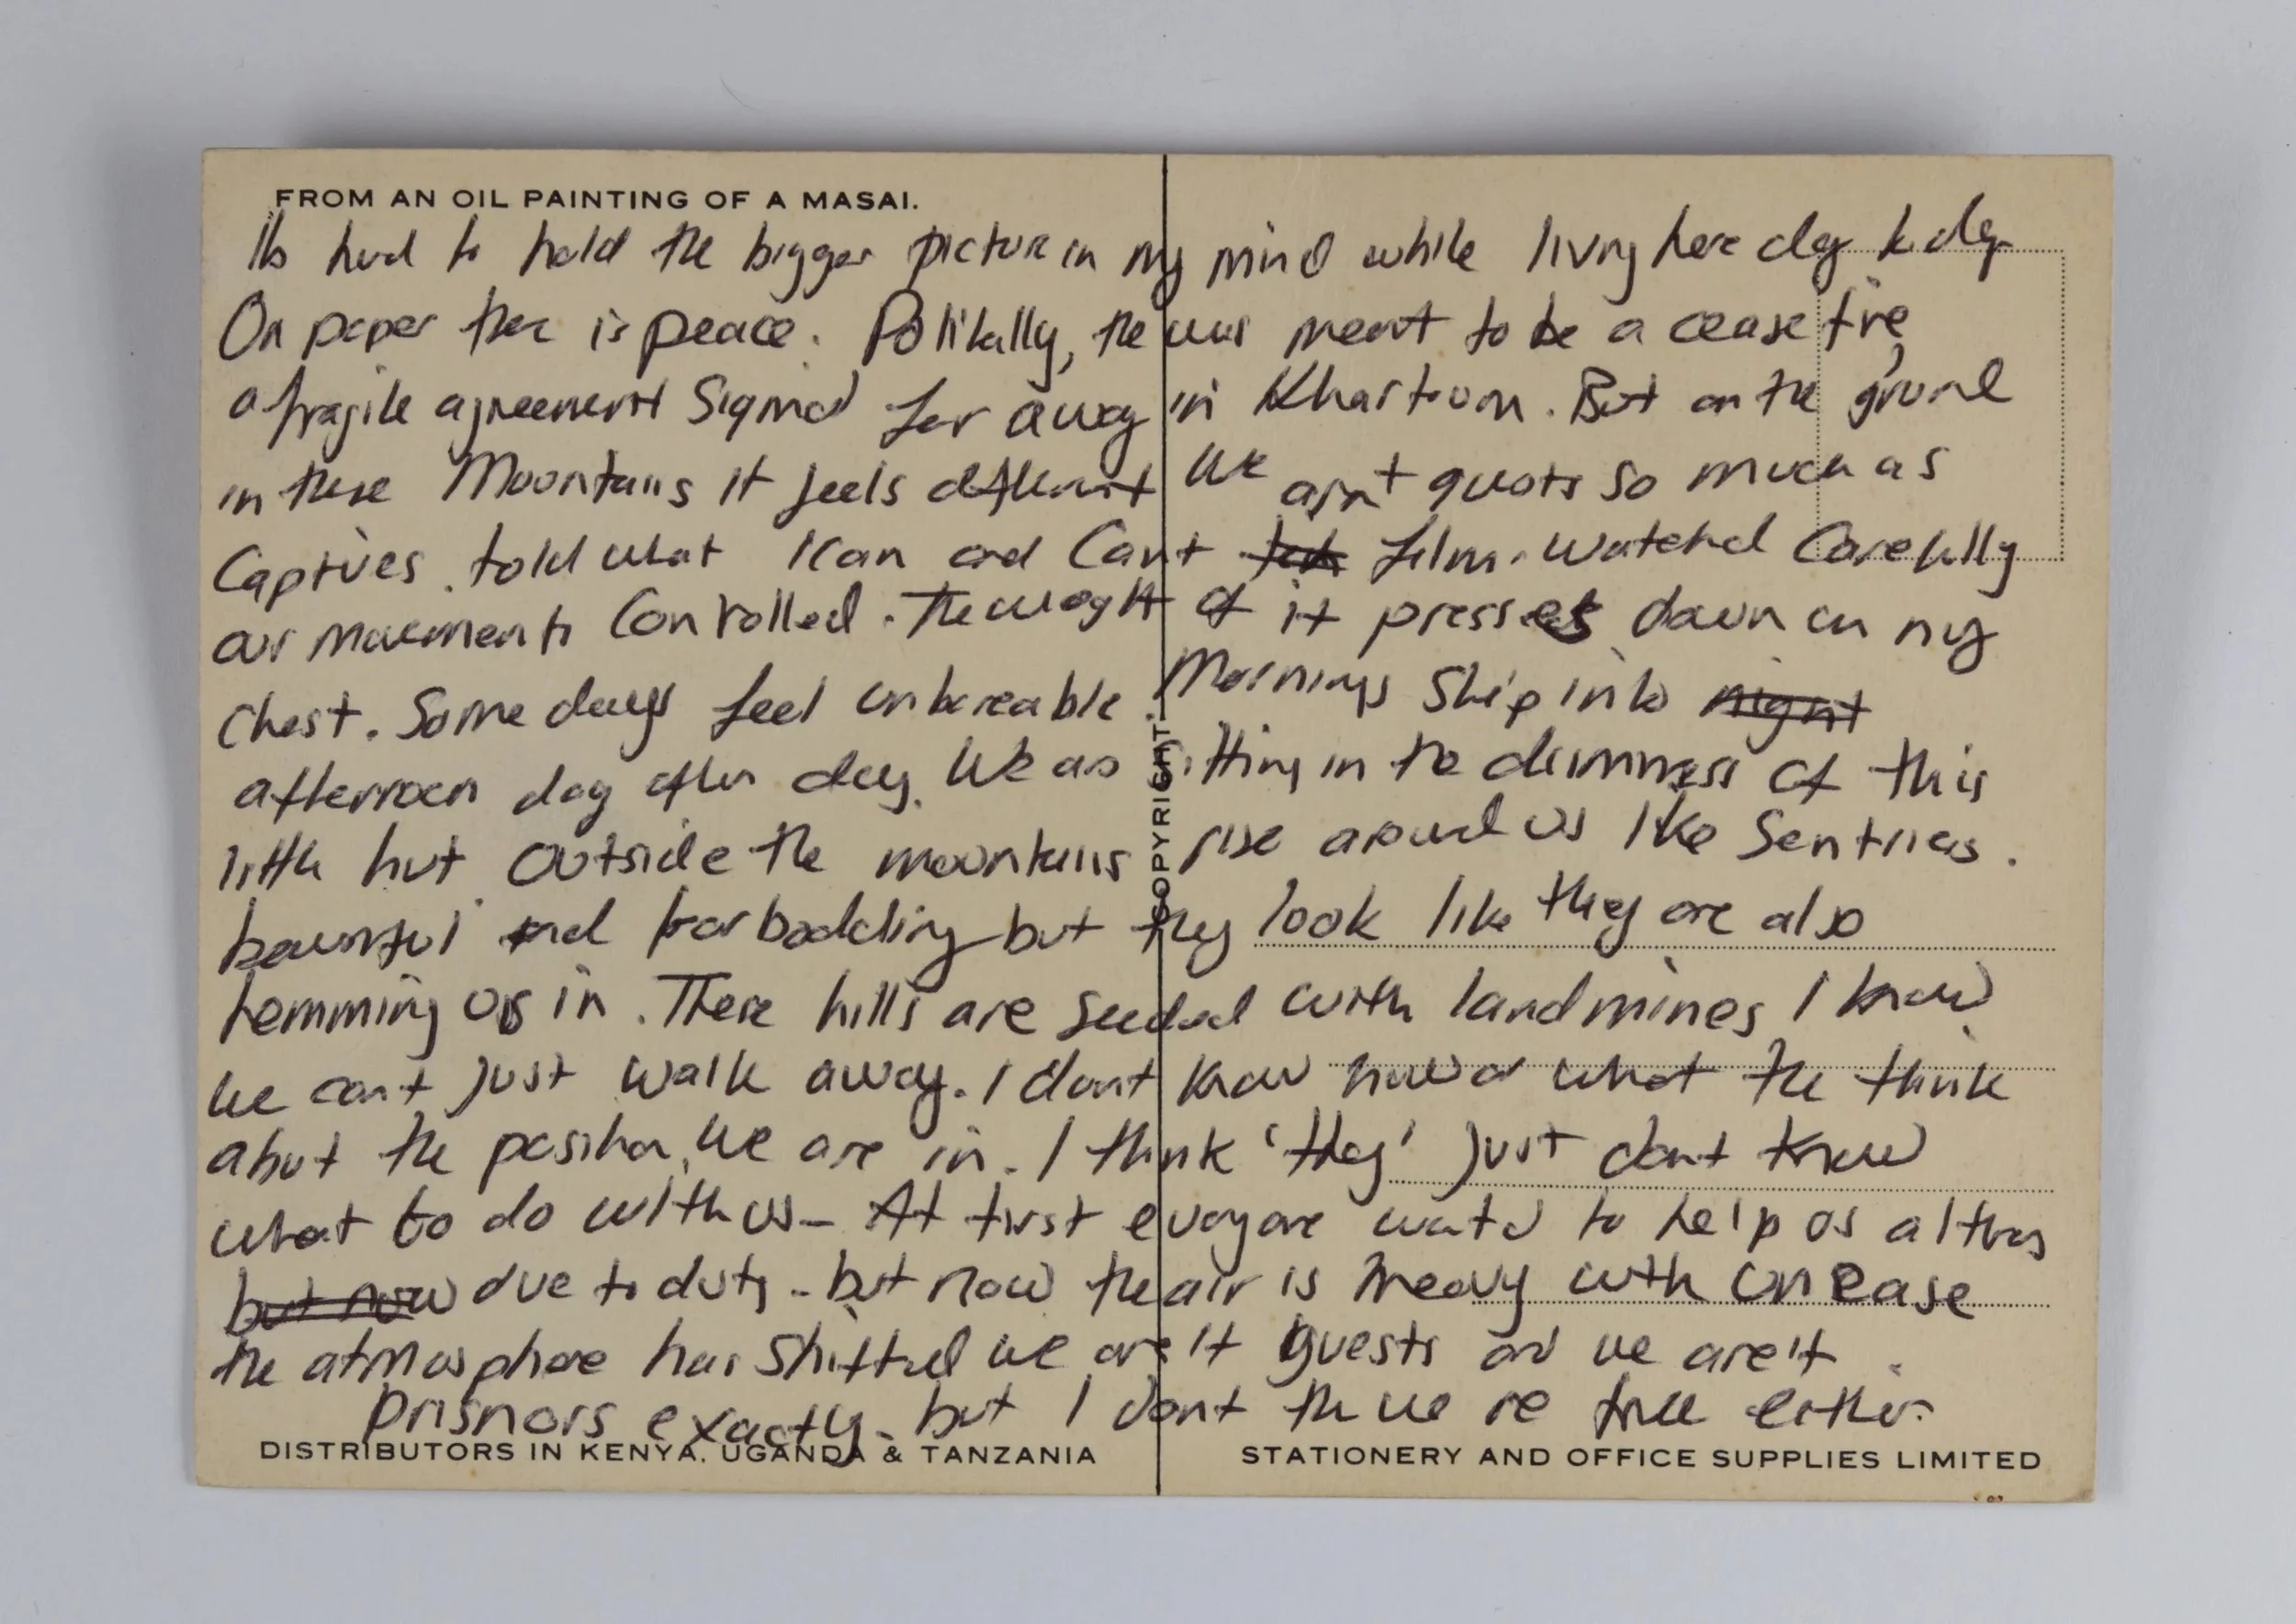 FROM AN OIL PAINTING OF A MASAI.
Its hard to hold the bigger picture in my mind while living here day to day
On paper there is peace. Politically, there was meant to be a cease fire,
a fragile agreement signed far away in Khartoum. But on the ground
in these Mountains it feels different We ain't guests so much as
Captives. told what I can and Cant film. Watched Carefully
our movements Controlled. The weight of it presses down on my
chest. Some days feel unbearable. Mornings slip into night
afternoon day after day. We are sitting in the dimness of this
little hut outside the mountains rise around us like Sentries.
beautiful and forbodding but they look like they are also
hemming us in. These hills are seeded with landmines I know
we cant just walk away. I dont know how or what the think
about the position we are in. I think 'they' just dont know
what to do with us - At first everyone wanted to help us
but now due to duty - but now the air is heavy with unease
the atmosphere has shifted we are'it guests and we are'it
prisnors exactly - but I dont we re free either.
COPYRIGHT.
DISTRIBUTORS IN KENYA. UGANDA & TANZANIA
STATIONERY AND OFFICE SUPPLIES LIMITED